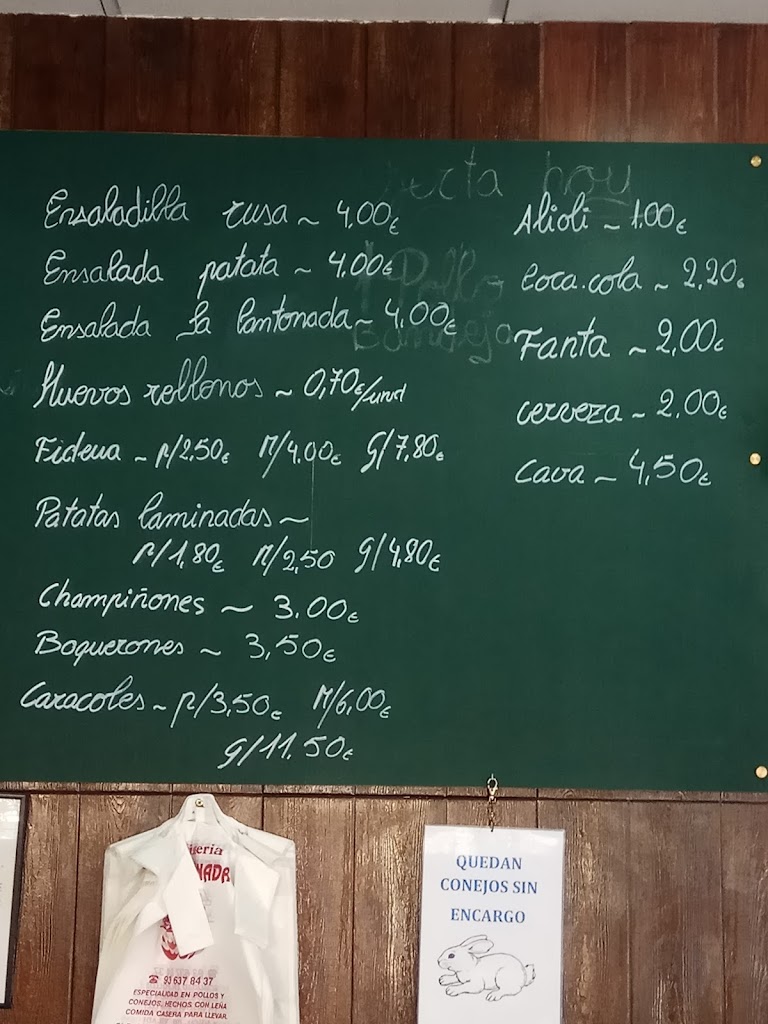 Ensaladilla rusa ~ 4,00€
Ensalada patata ~ 4,00€
Ensalada la lantonada ~ 4,00€
Huevos rellonos ~ 0,70€/unid
Fideua ~ P/2,50€ M/4,00€ G/7,80€
Patatas laminadas ~
P/1,80€ M/2,50 G/4,80€
Champiñones ~ 3.00€
Boquerones ~ 3,50€
Caracoles ~ P/3,50€ M/6,00€
G/11.50€
hoy
Pollo
Alioli ~ 1.00€
Coca.cola ~ 2,20€
Fanta ~ 2,00€
cerveza ~ 2,00€
Cava ~ 4,50€
93 637 84 37
ESPECIALIDAD EN POLLOS Y
CONEJOS, HECHOS CON LEÑA
COMIDA CASERA PARA LLEVAR
QUEDAN
CONEJOS SIN
ENCARGO